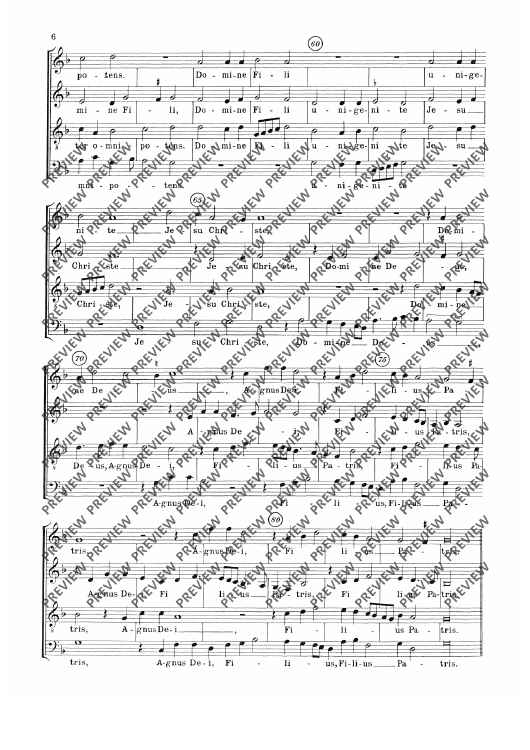 6
60
po-tens. Do-mi-ne Fi-li u-ni-ge-
mi-ne Fi-li, Do-mi-ne Fi-li u-ni-ge-ni-te Je-su
ter o-mni-po-tens. Do-mi-ne Fi-li u-ni-ge-ni-te Je-su
mni-po-tens. u-ni-ge-ni-te
65
ni-te Je-su Chri-ste, Do-mi-
Chri-ste Je-su Chri-ste, Do-mi-ne De-us,
Chri-ste, Je-su Chri-ste, Do-mi-ne
Je-su Chri-ste, Do-mi-ne De-us
70 75
ne De-us, A-gnus De-i, Fi-li-us Pa-
A-gnus De-i, Fi-li-us Pa-tris,
De-us, A-gnus De-i, Fi-li-us Pa-tris, Fi-li-us Pa-
A-gnus De-i, Fi-li-us, Fi-li-us Pa-
80
tris, A-gnus De-i, Fi-li-us Pa-tris.
A-gnus De-i Fi-li-us Pa-tris, Fi-li-us Pa-tris.
tris, A-gnus De-i, Fi-li-us Pa-tris.
tris, A-gnus De-i, Fi-li-us, Fi-li-us Pa-tris.